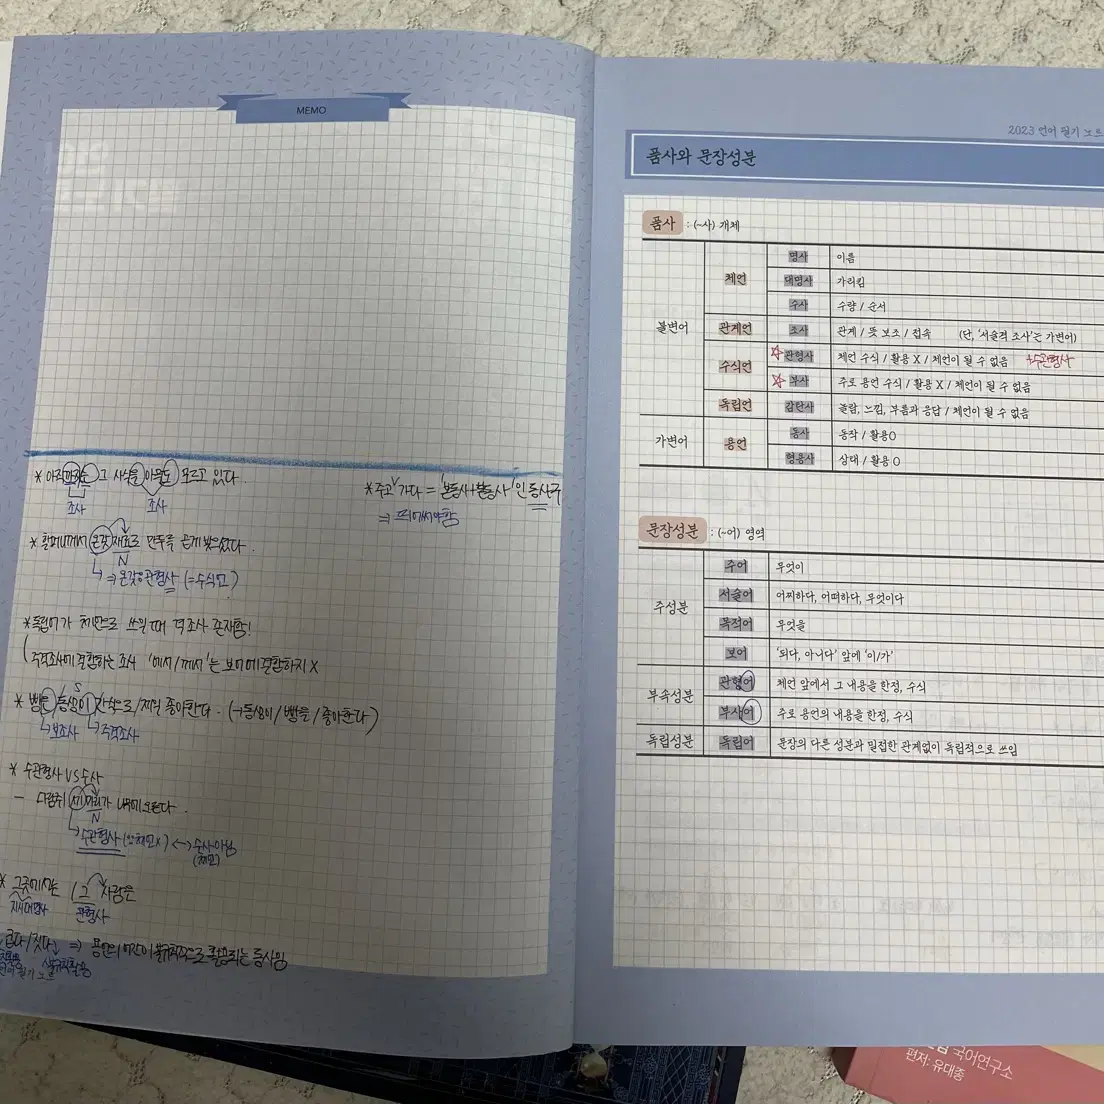 MEMO
* 아직까지는 그 사실을 아무도 모르고 있다.
조사 조사
* 주고 가다 = '본동사+본동사'인 동사구
⇒ 띄어써야함
* 할머니께서 온갖 재료로 만두를 빚으셨다.
N
⇒ 온갖: 관형사 (=수식언)
* 독립어가 체언으로 쓰일 때 격조사 존재함!
주격조사에 결합하는 조사 '에서/께서'는 보어에 결합하지 X
* 빵을 동생이 간식으로/제일 좋아한다. (→동생이/빵을/좋아한다)
S
보조사 주격조사
* 수관형사 VS 수사
- 다람쥐 세 마리가 나무에 오른다.
N
수관형사 (→체언X) ↔ 수사 아님
(체언)
* 그곳에서는 / 그 사람은
지시대명사 관형사
⇒ 용언의 어간이 불규칙적으로 활용되는 동사임
필기 노트
2023 언어 필기 노트
품사와 문장성분
품사 : (~사) 개체
불변어 체언 명사 이름
대명사 가리킴
수사 수량 / 순서
관계언 조사 관계 / 뜻 보조 / 접속 (단, '서술격 조사'는 가변어)
수식언 ☆관형사 체언 수식 / 활용 X / 체언이 될 수 없음 +수관형사
☆부사 주로 용언 수식 / 활용 X / 체언이 될 수 없음
독립언 감탄사 놀람, 느낌, 부름과 응답 / 체언이 될 수 없음
가변어 용언 동사 동작 / 활용O
형용사 상태 / 활용 O
문장성분 : (~어) 영역
주성분 주어 무엇이
서술어 어찌하다, 어떠하다, 무엇이다
목적어 무엇을
보어 '되다, 아니다' 앞에 '이/가'
부속성분 관형어 체언 앞에서 그 내용을 한정, 수식
부사어 주로 용언의 내용을 한정, 수식
독립성분 독립어 문장의 다른 성분과 밀접한 관계없이 독립적으로 쓰임
국어연구소
편저: 유대종